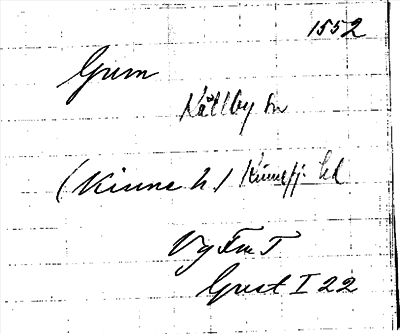 1552
Gum
Källby sn
(Kinne h) Kinnefj. hd
Vg Fm T
Gust I 22